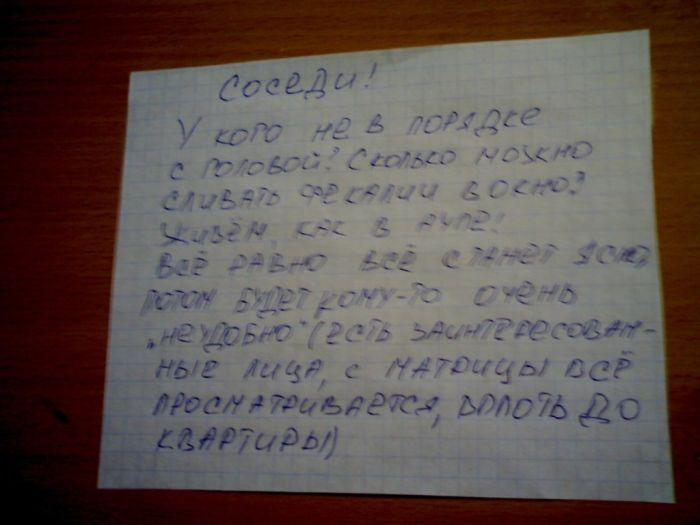 СОСЕДИ!
У КОГО НЕ В ПОРЯДКЕ
С ГОЛОВОЙ? СКОЛЬКО МОЖНО
СЛИВАТЬ ФЕКАЛИИ В ОКНО?
ЖИВЁМ, КАК В АУЛЕ!
ВСЁ РАВНО ВСЁ СТАНЕТ ЯСНО,
ПОТОМ БУДЕТ КОМУ-ТО ОЧЕНЬ
„НЕУДОБНО" (ЕСТЬ ЗАИНТЕРЕСОВАН-
НЫЕ ЛИЦА, С МАТРИЦЫ ВСЁ
ПРОСМАТРИВАЕТСЯ, ВПЛОТЬ ДО
КВАРТИРЫ)